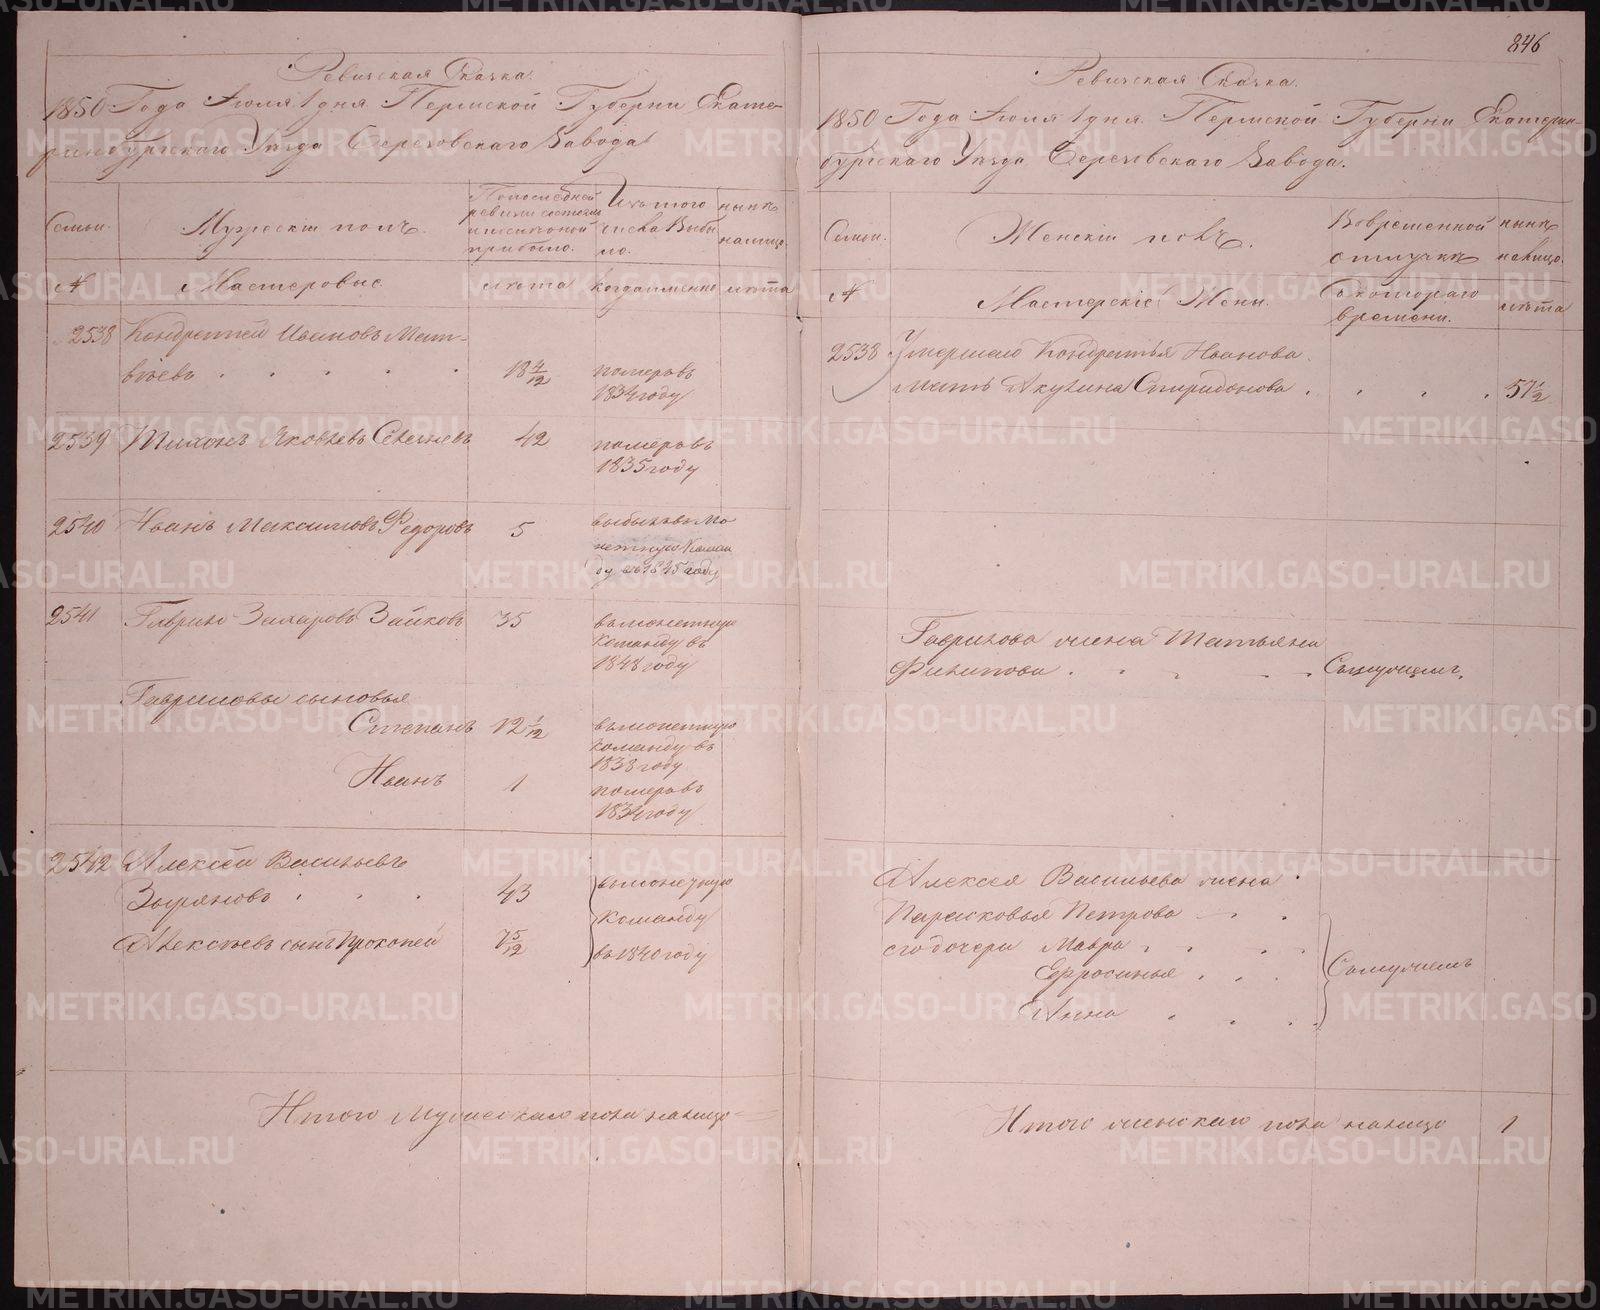 Ревизская Сказка.
1850 Года Июля 1 дня Пермской Губерни Екате-
ринбургскаго Уезда Березовскаго Завода
Семьи.
Мужескiй полъ.
По последней
ревизiи состояло
и после оной
прибыло.
Изъ того
числа Выбы
ло.
ныне
налицо.
№
Мастеровые
лета
когда именно
лета
2538 Кондратей Ивановъ Мат-
веевъ 18 4/12 померъ въ
1834 году
2539 Тихонъ Яковлевъ 42 померъ въ
1835 году
2540 Иванъ Максимовъ Федоровъ 5 выбылъ въ Мо
нетную Коман
ду въ 1845 году
2541 Гаврило Захаровъ Зайковъ 35 въ монетную
команду въ
1848 году
Гавриловы сыновья
Степанъ 12 1/12 въ монетную
команду въ
1838 году
Иванъ 1 померъ въ
1834 году
2542 Алексей Васильевъ
Зыряновъ 43 въ монетную
команду
Алексеевъ сынъ Прокопей 7 5/12 въ 1840 году
Итого Мужескаго пола налицо
846
Ревизская Сказка.
1850 Года Июля 1 дня Пермской Губерни Екатерин-
бургскаго Уезда Березовскаго Завода.
Семьи.
Женскiй полъ.
Во временной
отлучке
ныне
налицо.
№
Мастерскiе Жены.
Съ котораго
времени.
лета
2538 Умершаго Кондратья Иванова
мать Акулина Спиридонова 57 1/2
Гаврилова жена Татьяна
Филипова Съ мужемъ.
Алексея Васильева жена
Парасковья Петрова
его дочери Мавра
Ефросинья Съ мужемъ
Анна
Итого женскаго пола налицо 1
METRIKI.GASO-URAL.RU